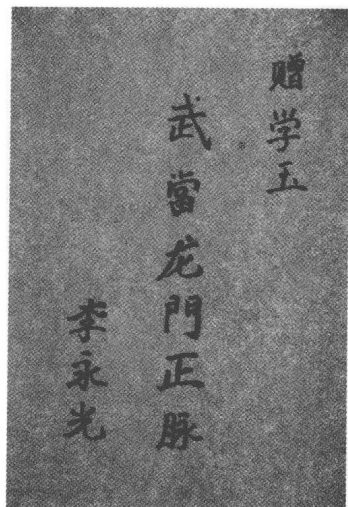 赠学玉
武當龙門正脉
李永光